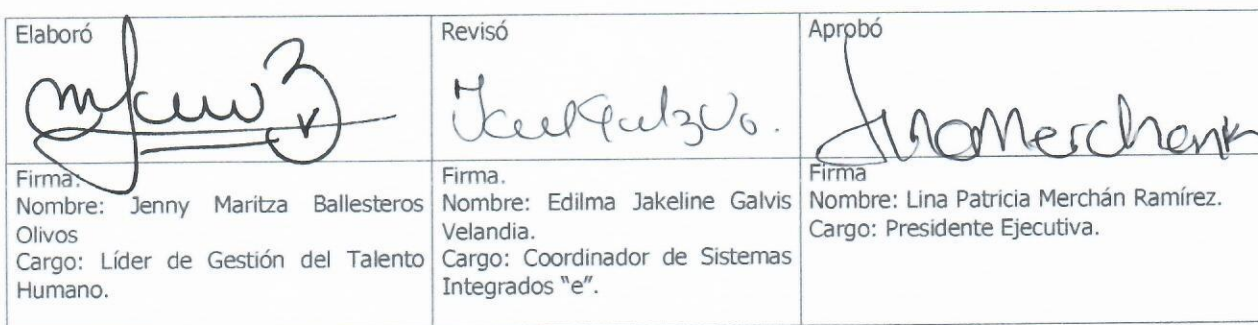 Elaboró
Firma.
Nombre: Jenny Maritza Ballesteros
Olivos
Cargo: Líder de Gestión del Talento
Humano.
Revisó
Firma.
Nombre: Edilma Jakeline Galvis
Velandia.
Cargo: Coordinador de Sistemas
Integrados "e".
Aprobó
Firma
Nombre: Lina Patricia Merchán Ramírez.
Cargo: Presidente Ejecutiva.